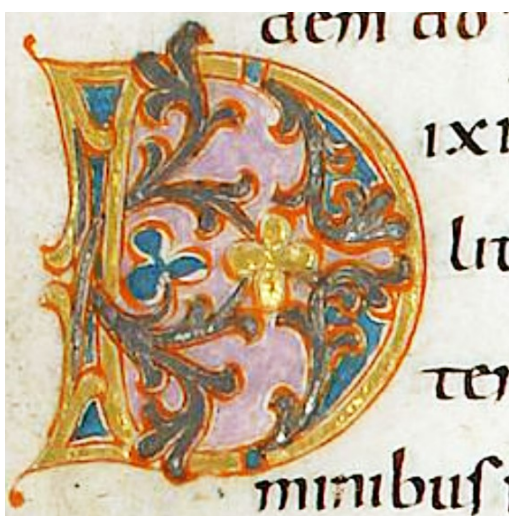 D
dem ad
ixi
lit
ter
minibus